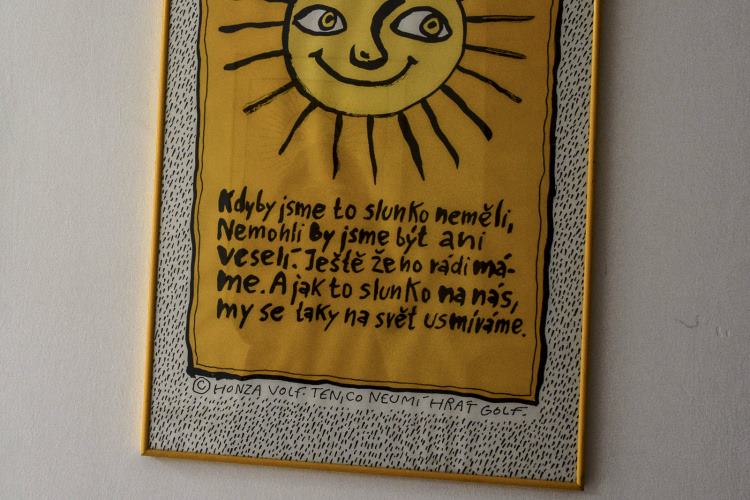 Kdyby jsme to slunko neměli,
Nemohli By jsme být ani
veselí. Ještě že ho rádi má-
me. A jak to slunko na nás,
my se taky na svět usmíváme.
© HONZA VOLF. TEN, CO NEUMÍ HRÁT GOLF.